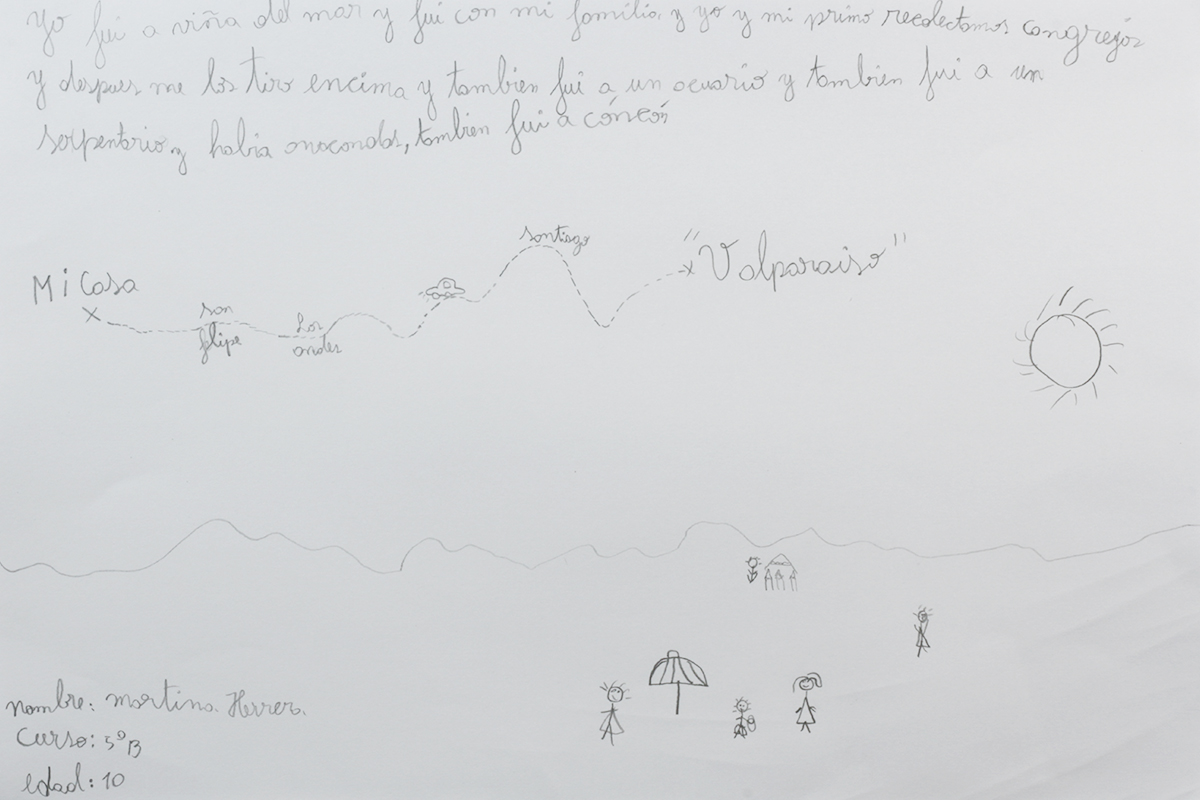 Yo fui a viña del mar y fui con mi familia, y yo y mi primo recolectamos congrejos
y despues me los tiro encima y tambien fui a un acuario y tambien fui a un
serpentario y habia anacondas, tambien fui a cóncón
santiago
"Valparaiso"
Mi Casa
san
felipe
Los
andes
nombre: martina. Herrera.
Curso: 5°B
edad: 10